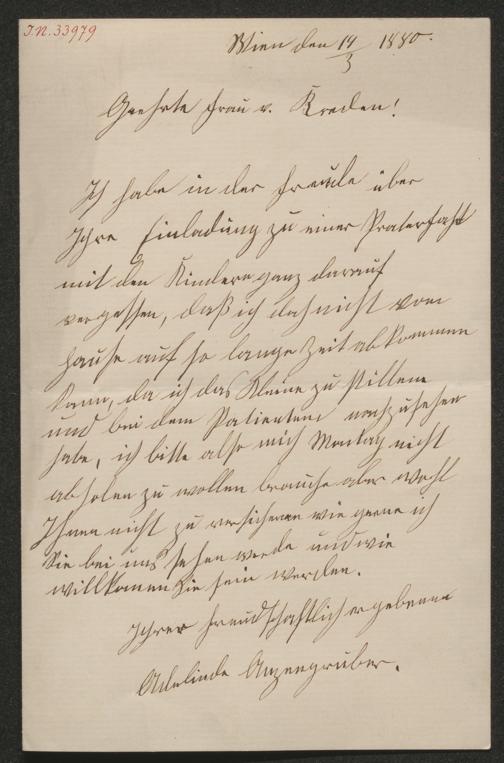 J.N. 33979
Wien den 14/3 1880.
Geehrte Frau v. Kreden!
Ich habe in der Freude über
Ihre Einladung zu einer Praterfahrt
mit den Kindern ganz darauf
vergessen, daß ich doch nicht vom
Hause auf so lange Zeit abkommen
kann, da ich das Kleine zu stillen
und bei dem Patienten nachzusehen
habe, ich bitte also mich Montag nicht
abholen zu wollen brauche aber wohl
Ihnen nicht zu versicheren wie gerne ich
Sie bei uns sehen werde und wie
willkomen Sie sein werden.
Ihre freundschaftlich ergebene
Adelinde Anzengruber.